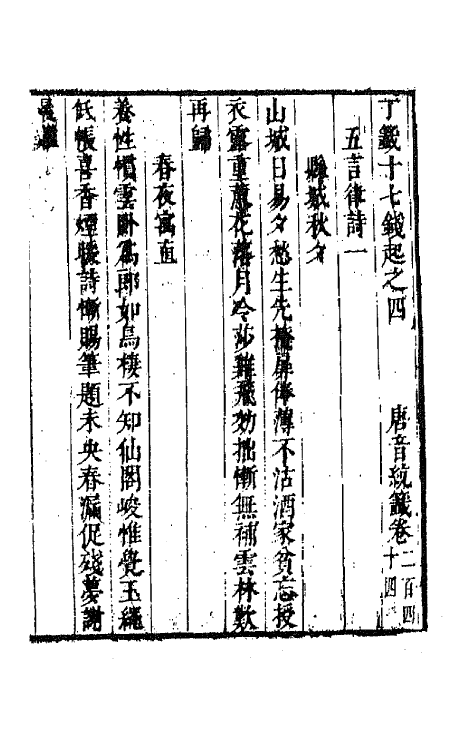 丁籖十七錢起之四　唐音統籖卷二百四十四
五言律詩一
縣城秋夕
山城日易夕愁生先掩扉俸薄不沽酒家貧忘授
衣露重蕙花落月冷莎雞飛効拙慚無補雲林歎
再歸
春夜寓直
養性慣雲卧爲郎如鳥棲不知仙閣峻惟覺玉繩
低帳喜香煙暖詩慚賜筆題未央春漏促殘夢謝
晨雞